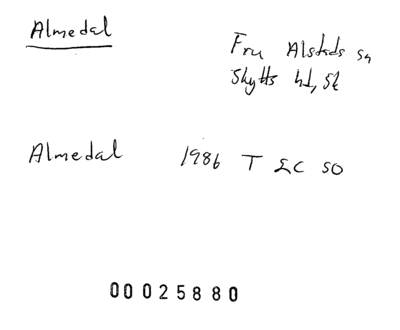 Almedal
Fru Alstads sn
Skytts hd, Sk
Almedal 1986 T EC SO
00025880